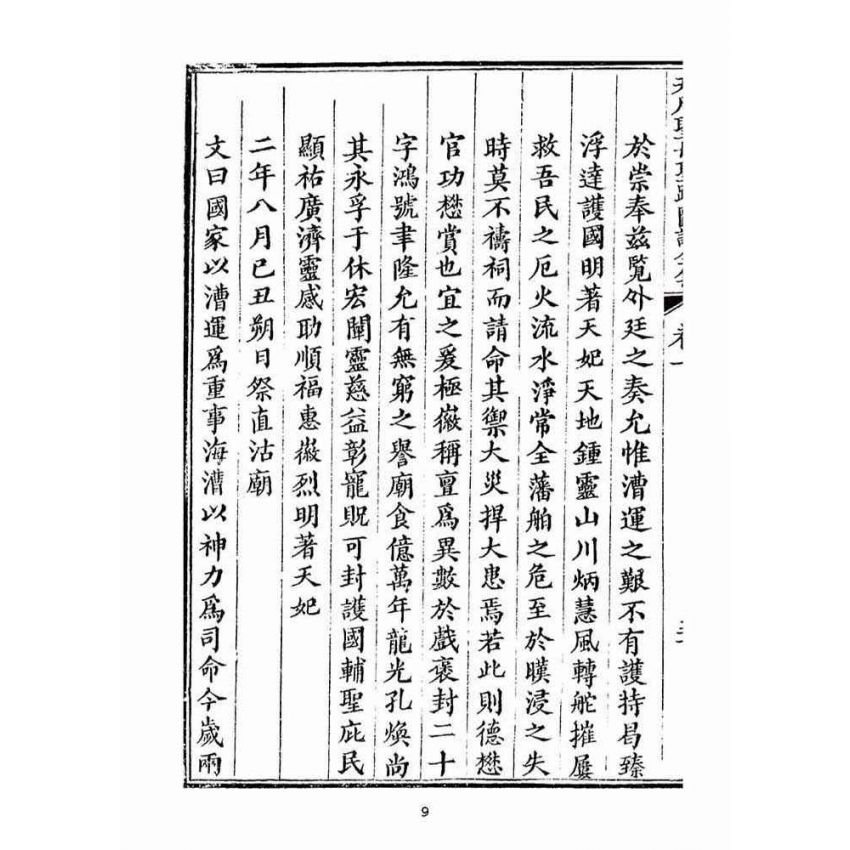 於崇奉茲覧外廷之奏允惟漕運之艱不有護持曷臻
浮達護國明著天妃天地鍾靈山川炳慧風轉舵摧屢
救吾民之厄火流水淨常全藩舶之危至於暵浸之失
時莫不禱祠而請命其禦大災捍大患焉若此則德懋
官功懋賞也宜之爰極徽稱亶爲異數於戲褒封二十
字鴻號聿隆允有無窮之譽廟食億萬年龍光孔煥尚
其永孚于休宏闡靈慈益彰寵貺可封護國輔聖庇民
顯祐廣濟靈感助順福惠徽烈明著天妃
二年八月已丑朔日祭直沽廟
文曰國家以漕運爲重事海漕以神力爲司命今歲兩
9